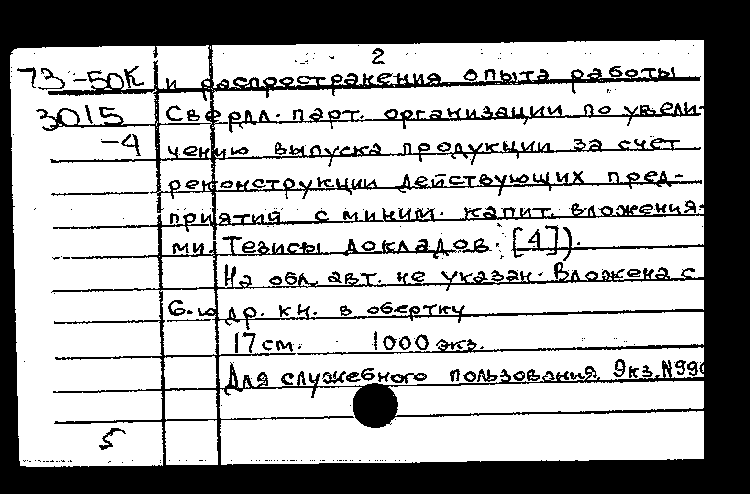 2
73-50К и распространения опыта работы
3015 Свердл. парт. организации по увели-
-4 чению выпуска продукции за счет
реконструкции действующих пред-
приятий с миним. капит. вложения-
ми. Тезисы докладов. [4]).
На обл. авт. не указан. Вложена с
6-ю др. кн. в обертку
17 см. 1000 экз.
Для служебного пользования. Экз. №990
5